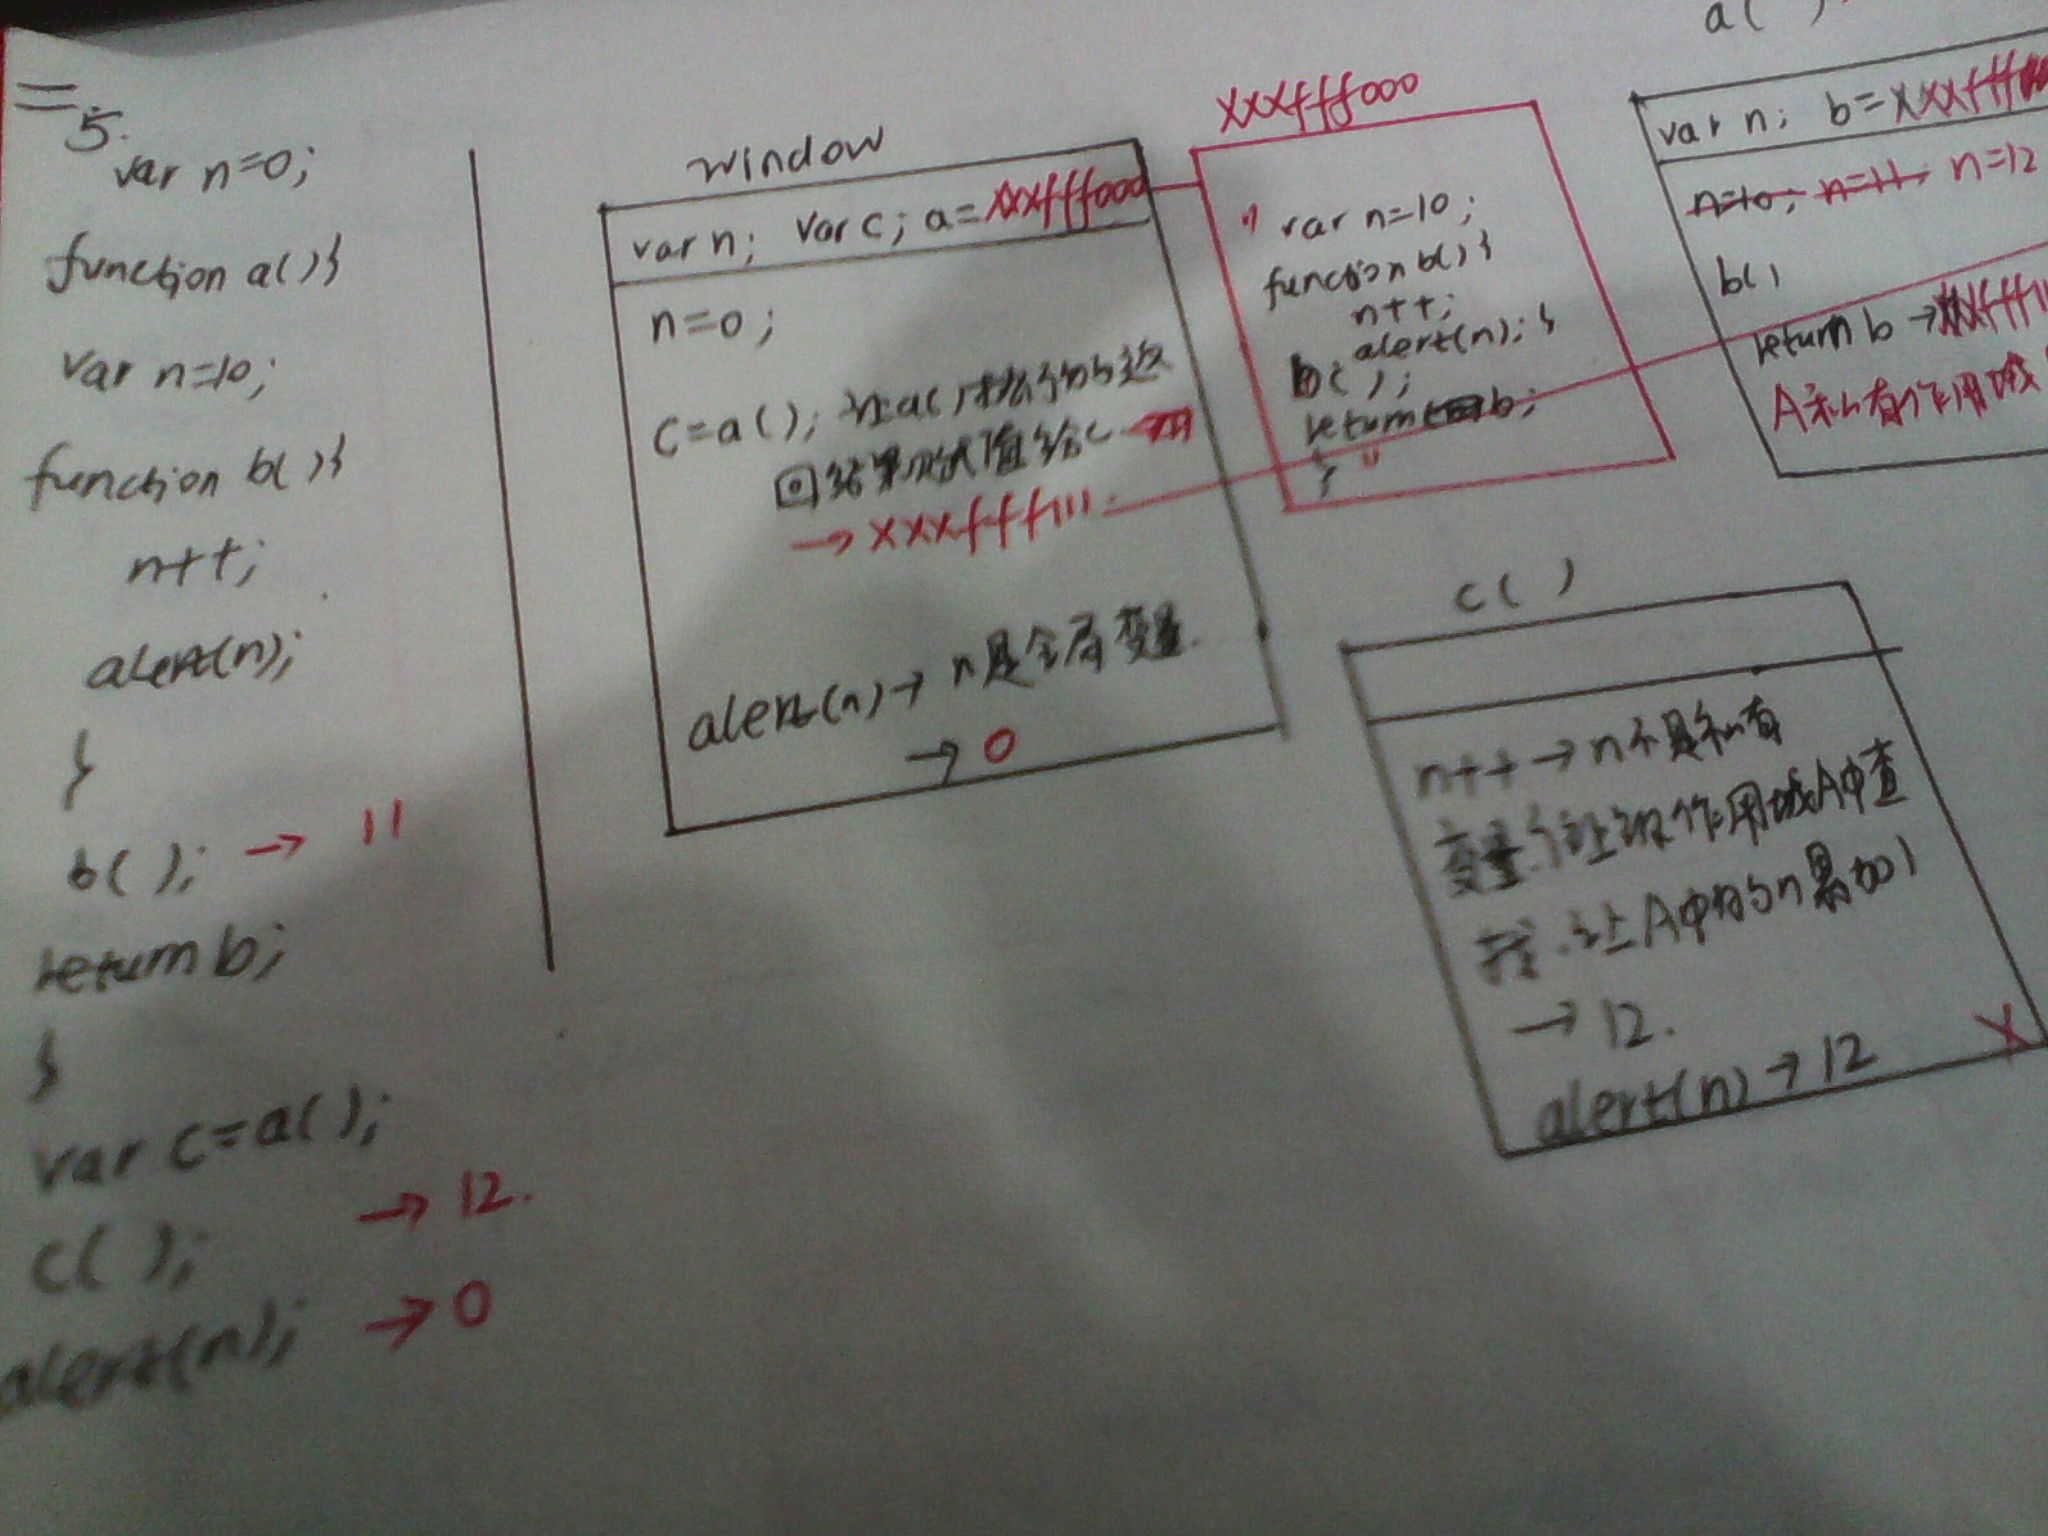 二
5.
var n=0;
function a(){
var n=10;
function b(){
n++;
alert(n);
}
b( ); → 11
return b;
}
var c=a();
c( ); → 12.
alert(n); → 0
window
var n; var c; a=xxxfff000
n=0;
c=a(); 让a()执行的返
回结果赋值给c
→ xxxfff111
alert(n)→ n是全局变量.
→ 0
xxxfff000
" var n=10;
function b(){
n++;
alert(n); }
b( );
return b;
} "
a( )
var n; b=xxxfff
n=10; n=11; n=12
b()
return b →xxxfff11
A私有作用域
c( )
n++→n不是私有
变量,往上级作用域A中查
找.让A中的n累加1
→12.
alert(n)→12